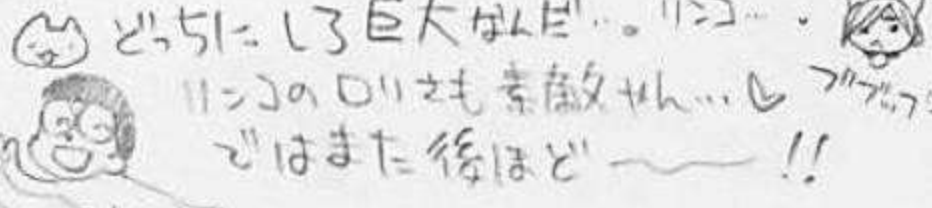 どっちにしろ巨大なんだ…。リンコ…。
リンコのロリさも素敵やん…♡
ブブッフ
ではまた後ほど〜〜!!